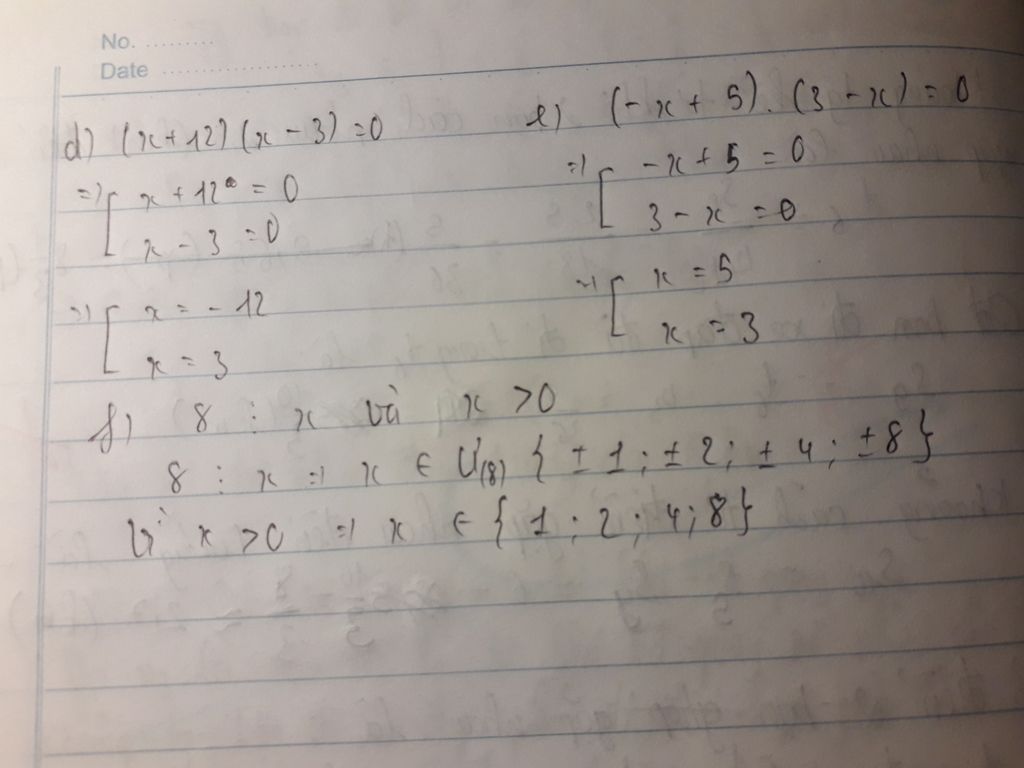 No. .........
Date ....................
d) (x+12)(x-3)=0
=> [ x + 12 = 0
x - 3 = 0
=> [ x = -12
x = 3
e) (-x + 5).(3 - x) = 0
=> [ -x + 5 = 0
3 - x = 0
=> [ x = 5
x = 3
f) 8 ⋮ x và x >0
8 ⋮ x => x ∈ Ư(8) { ±1; ±2; ±4; ±8}
Vì x >0 => x ∈ { 1 ; 2 ; 4; 8}